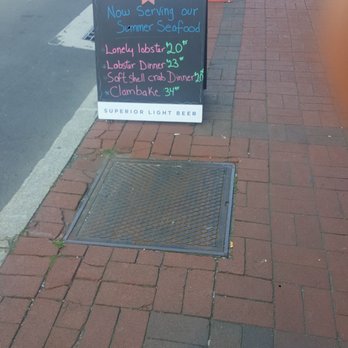 Now Serving our
Summer Seafood
Lonely lobster $20
Lobster Dinner $23
Soft shell crab Dinner
Clambake 34
SUPERIOR LIGHT BEER